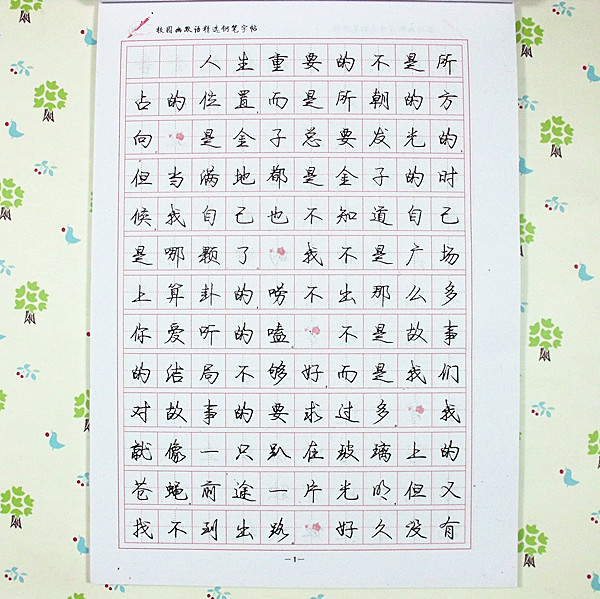 校园幽默语精选钢笔字帖
人生重要的不是所
占的位置而是所朝的方
向 是金子总要发光的
但当满地都是金子的时
候,我自己也不知道自己
是哪颗了。 我不是广场
上算卦的,唠不出那么多
你爱听的嗑。 不是故事
的结局不够好,而是我们
对故事的要求过多。 我
就像一只趴在玻璃上的
苍蝇,前途一片光明,但又
找不到出路。 好久没有
-1-